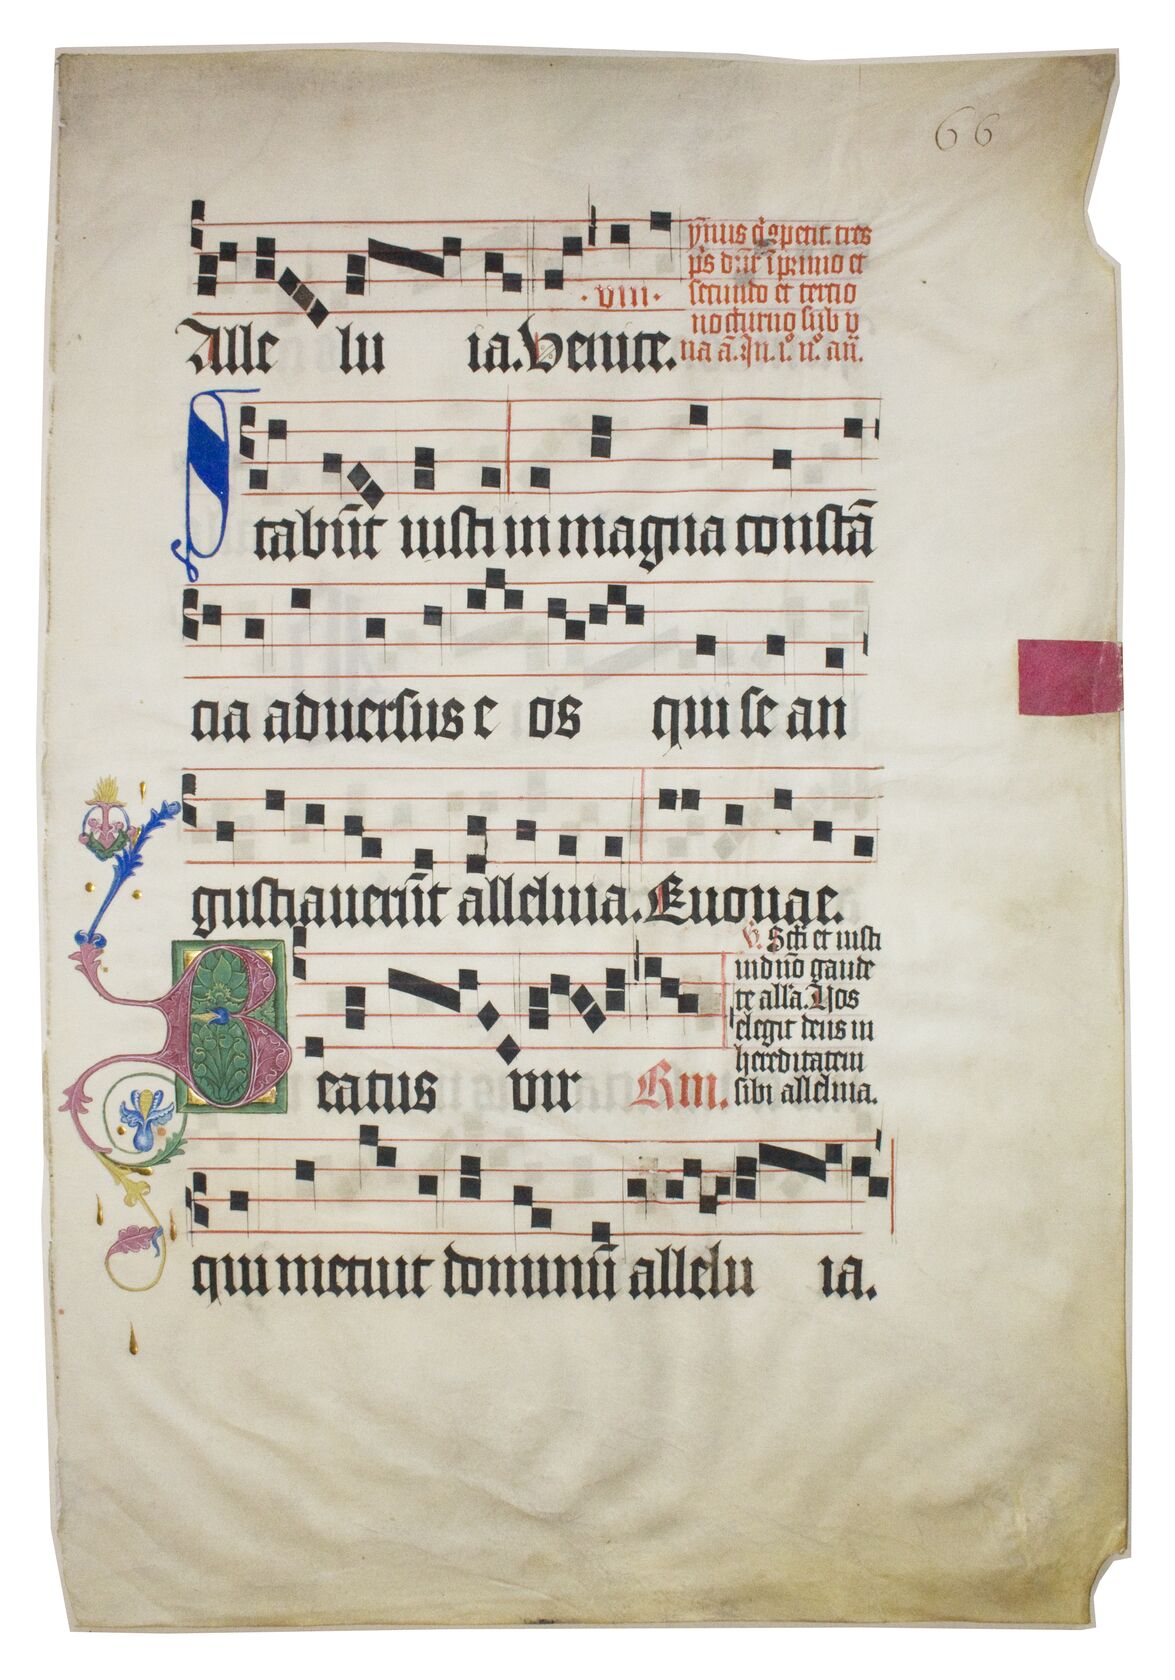 66
Alle lu ia. Venite.
·viii·
ỹnus q̃ oꝑetit. tres
p̃s dñr ĩ primo et
secundo et tercio
nocturno sub v
na ã. In. i.º n.º añ.
Stabũt iusti in magna constã
cia aduersus e os qui se an
gustiauerũt alleluia. Euouae.
V̄. Scti et iusti
in dño gaude
te alla. Nos
elegit deus in
hereditatem
sibi alleluia.
Beatus vir Rm.
qui metuit dominũ allelu ia.